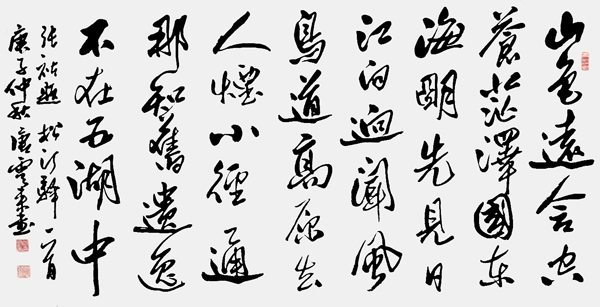 山色遠含空
蒼茫澤國東
海明先見日
江白迥聞風
鳥道高原去
人煙小徑通
那知舊遺逸
不在五湖中
張祜題松汀驛一首
庚子仲秋唐雲來書